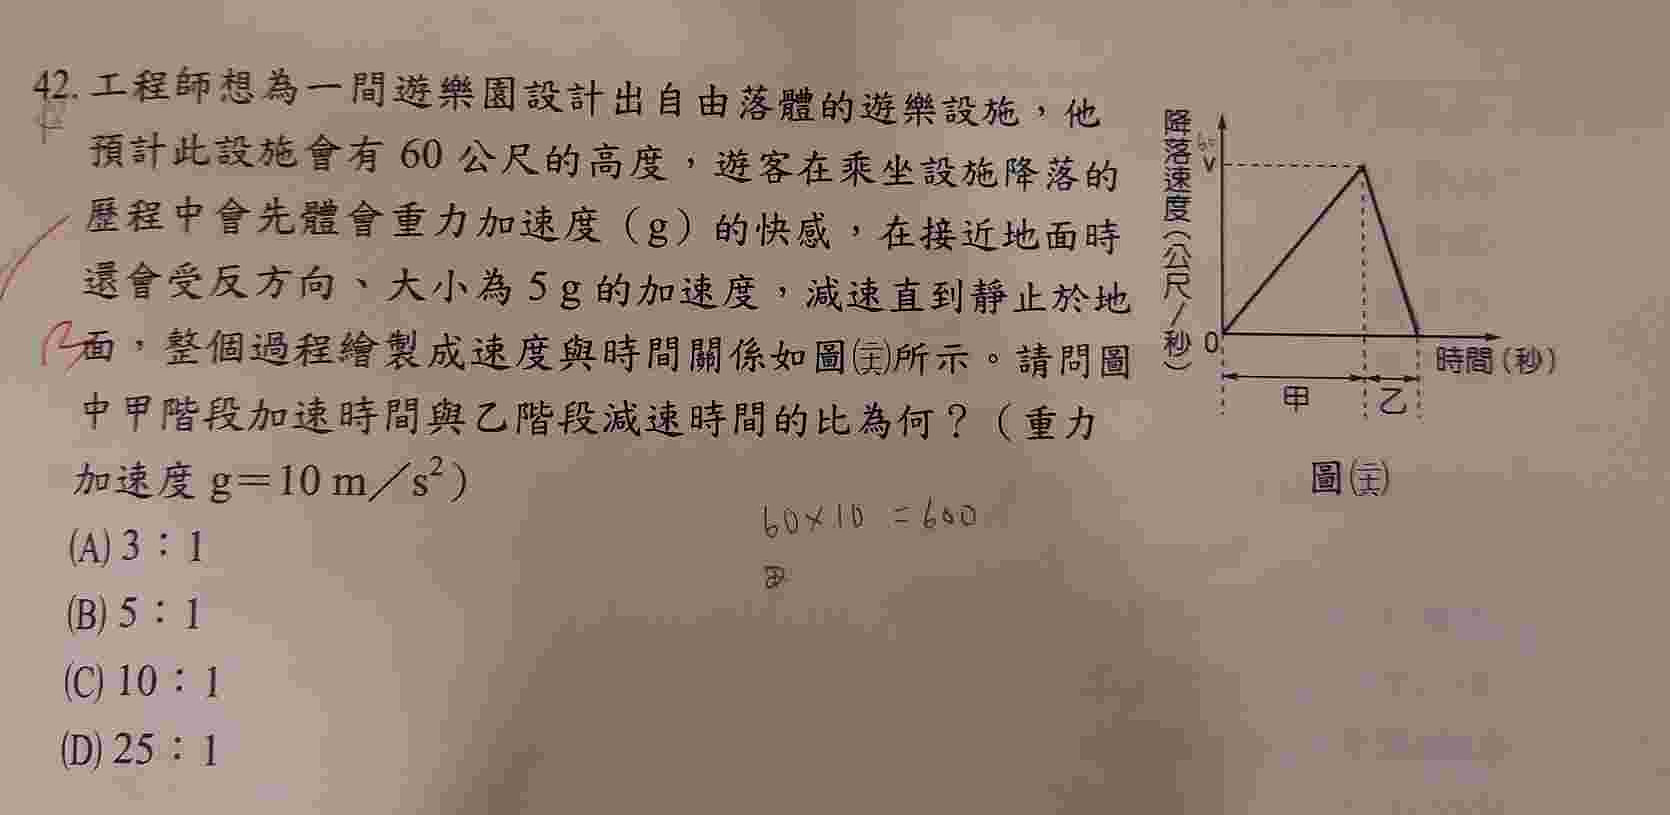 42. 工程師想為一間遊樂園設計出自由落體的遊樂設施，他
預計此設施會有 60 公尺的高度，遊客在乘坐設施降落的
歷程中會先體會重力加速度（g）的快感，在接近地面時
還會受反方向、大小為 5 g 的加速度，減速直到靜止於地
面，整個過程繪製成速度與時間關係如圖㈩所示。請問圖
中甲階段加速時間與乙階段減速時間的比為何？（重力
加速度 g＝10 m／s²）
(A) 3：1
(B) 5：1
(C) 10：1
(D) 25：1
降落速度（公尺／秒）
v
0
時間（秒）
甲
乙
圖
60×10 = 600
B